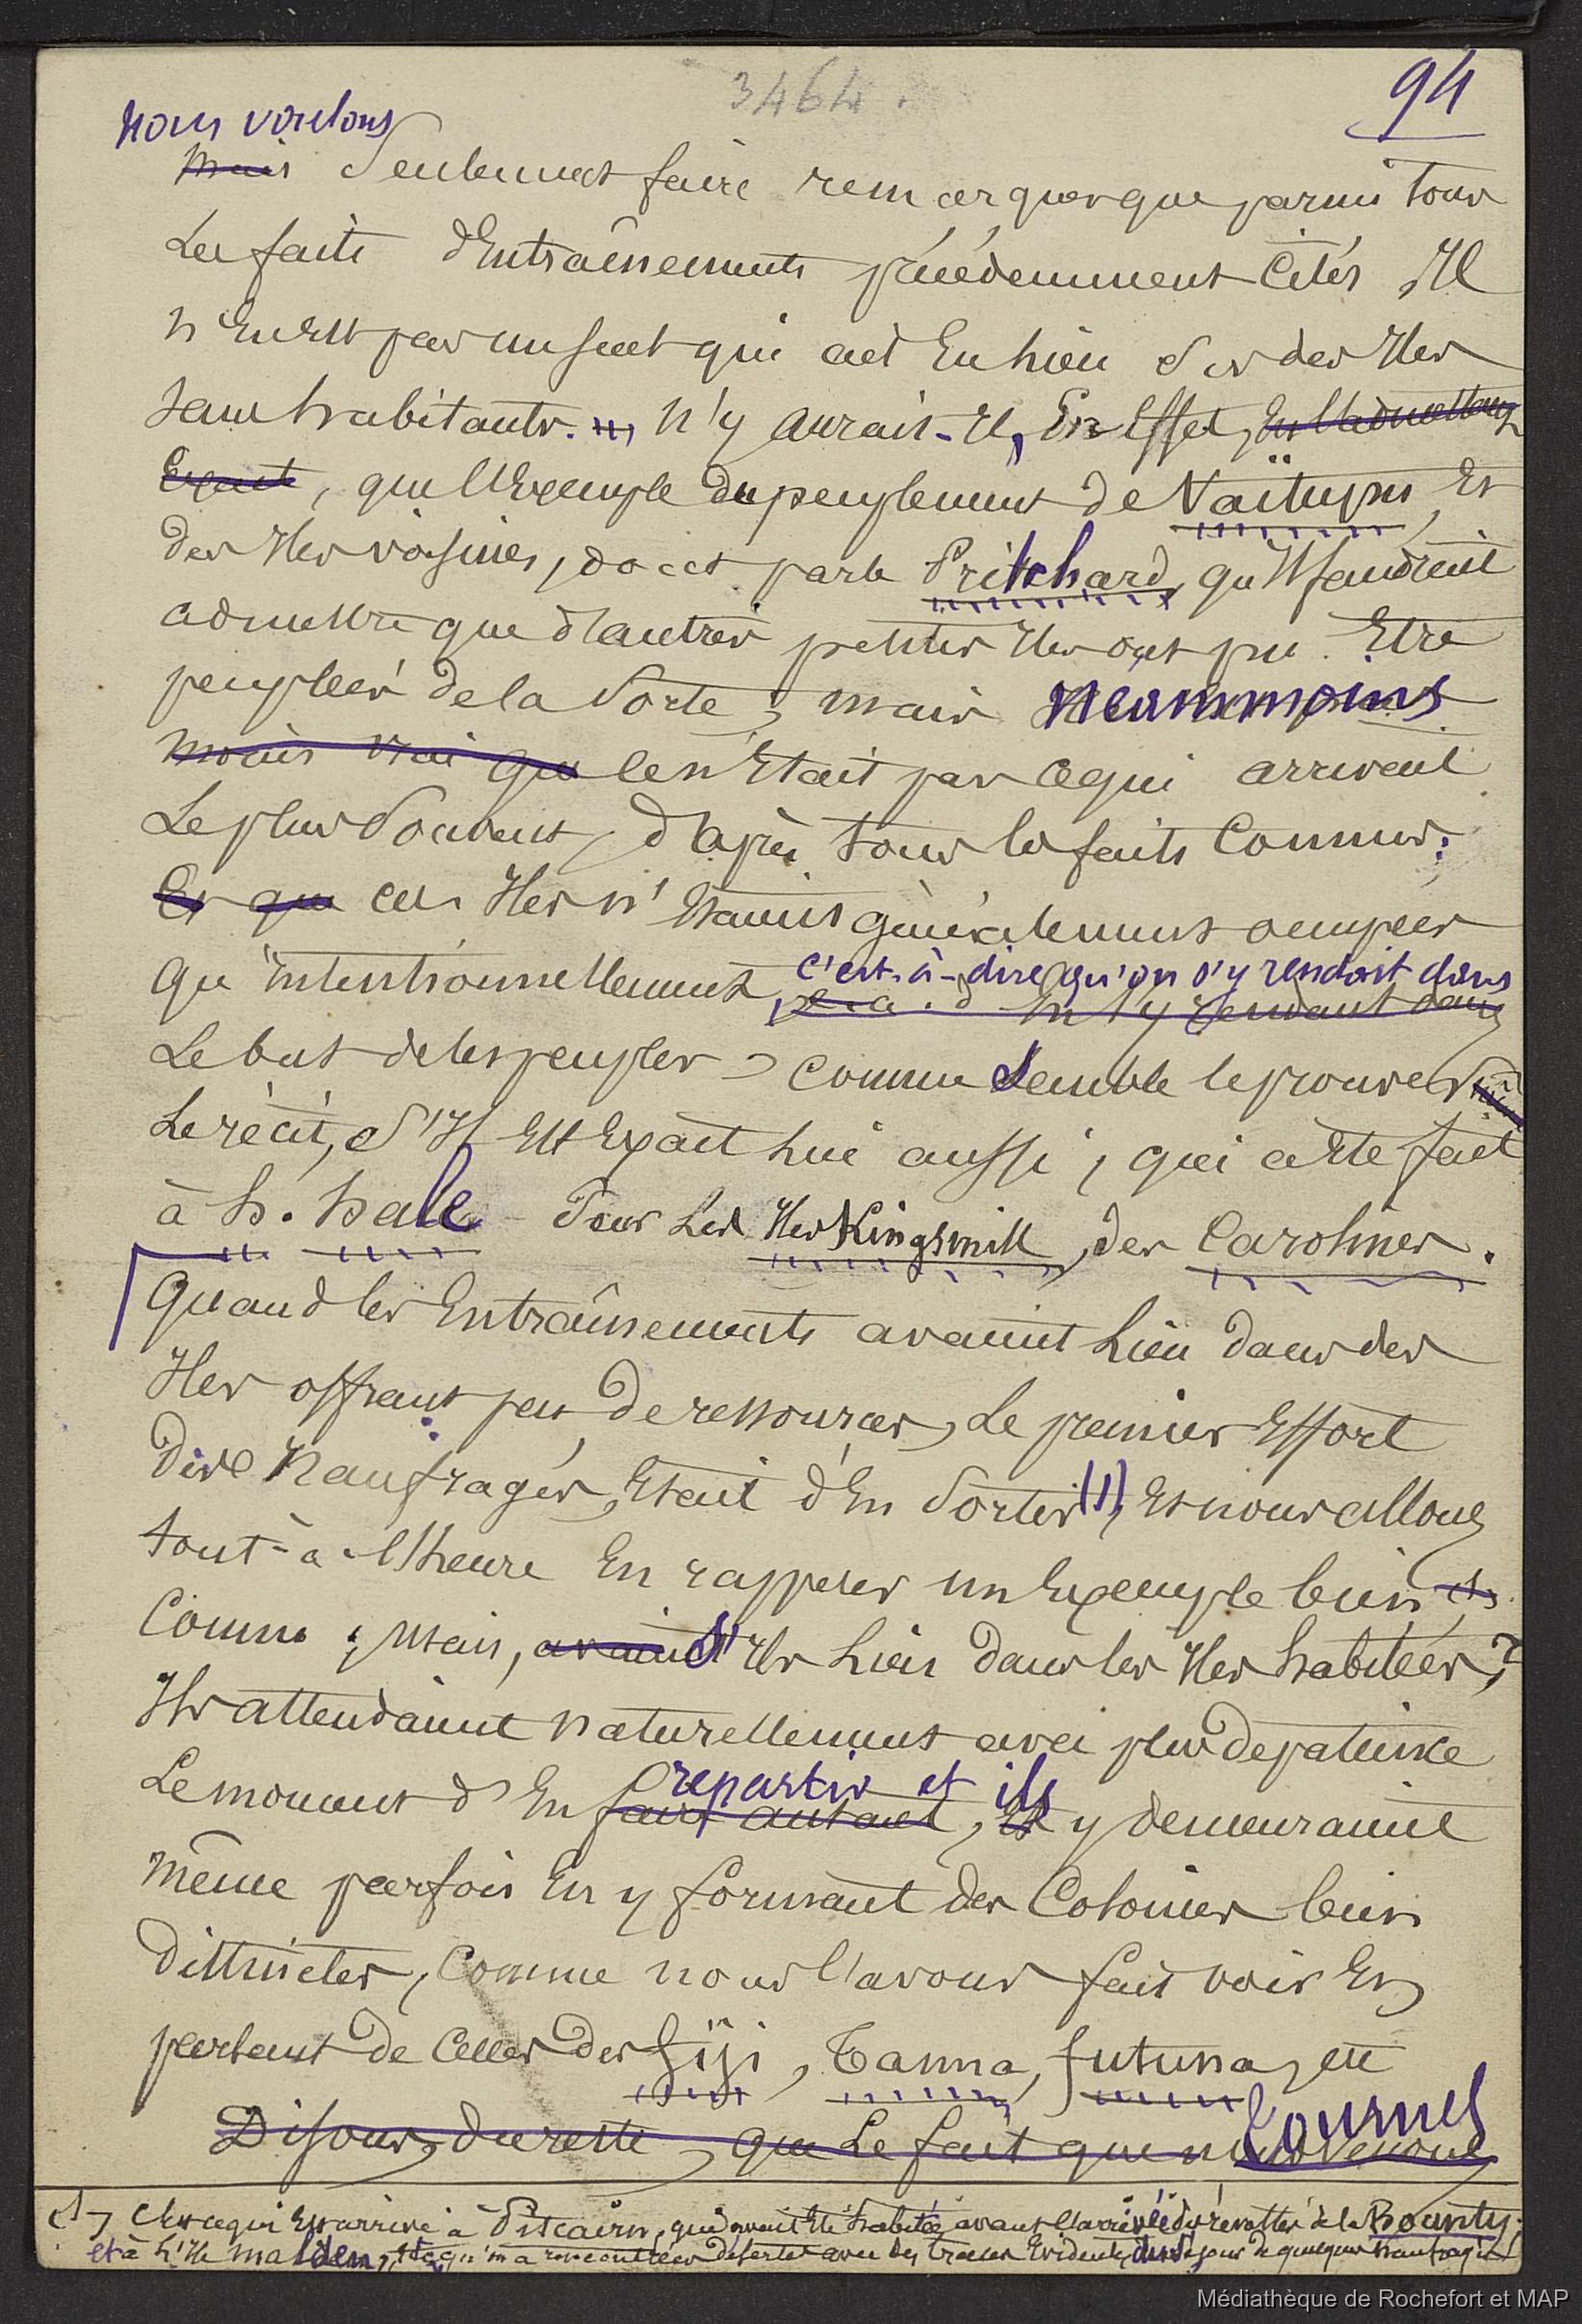 3464.
94
nous voulons
Mais Seulement faire remarquer que parmi tous
Les faits d'Entraînements précédemment Cités, Il
n'En Est pas un seul qui ait Eu lieu sur des Iles
sans habitants. N'y aurait-Il, En Effet, En l'admettant
Exact, que l'Exemple du peuplement de Vaïtupu, Et
des Iles voisines, donné par le Pritchard, qu'Il faudrait
admettre que d'autres petites Iles ont pu Etre
peuplées de la Sorte; mais néanmoins
moins vrai que ce n'Etait pas ce qui arrivait
Le plus Souvent, d'après tous les faits Connus;
Et que ces Iles n'Etaient généralement occupées
qu'intentionnellement, c'est-à-dire qu'on s'y rendait dans
c. a. d En s'y rendant dans
Le but de les peupler, comme Semble le prouver
Le récit, S'Il Est Exact lui aussi, qui a été fait
à H. Hale Pour Les Iles Kingsmill, des Carolines.
Quand les Entraînements avaient Lieu dans des
Iles offrant peu de ressources, Le premier Effort
des Naufragés, Etait d'En Sortir (1), Et nous allons
tout-à-l'heure En rappeler un Exemple bien
Connu; Mais, avaient Ils Lieu dans les Iles habitées,?
Ils attendaient naturellement avec plus de patience
Le moment d'En repartir et ils
faire autant, Et y demeuraient
même parfois En y formant des Colonies bien
distinctes, Comme nous l'avons fait voir En
parlant de Celles des Fiji, Tanna, futuna, etc
Disons, du reste, que Le fait que nous venons
(1) C'est ce qui Est arrivé à Pitcairn, qui avait Eté habitée avant l'arrivée des révoltés de la Bounty;
et à l'Ile Malden, qu'on a rencontrées désertes avec des traces Evidentes du Séjour de quelques Naufragés.
Médiathèque de Rochefort et MAP